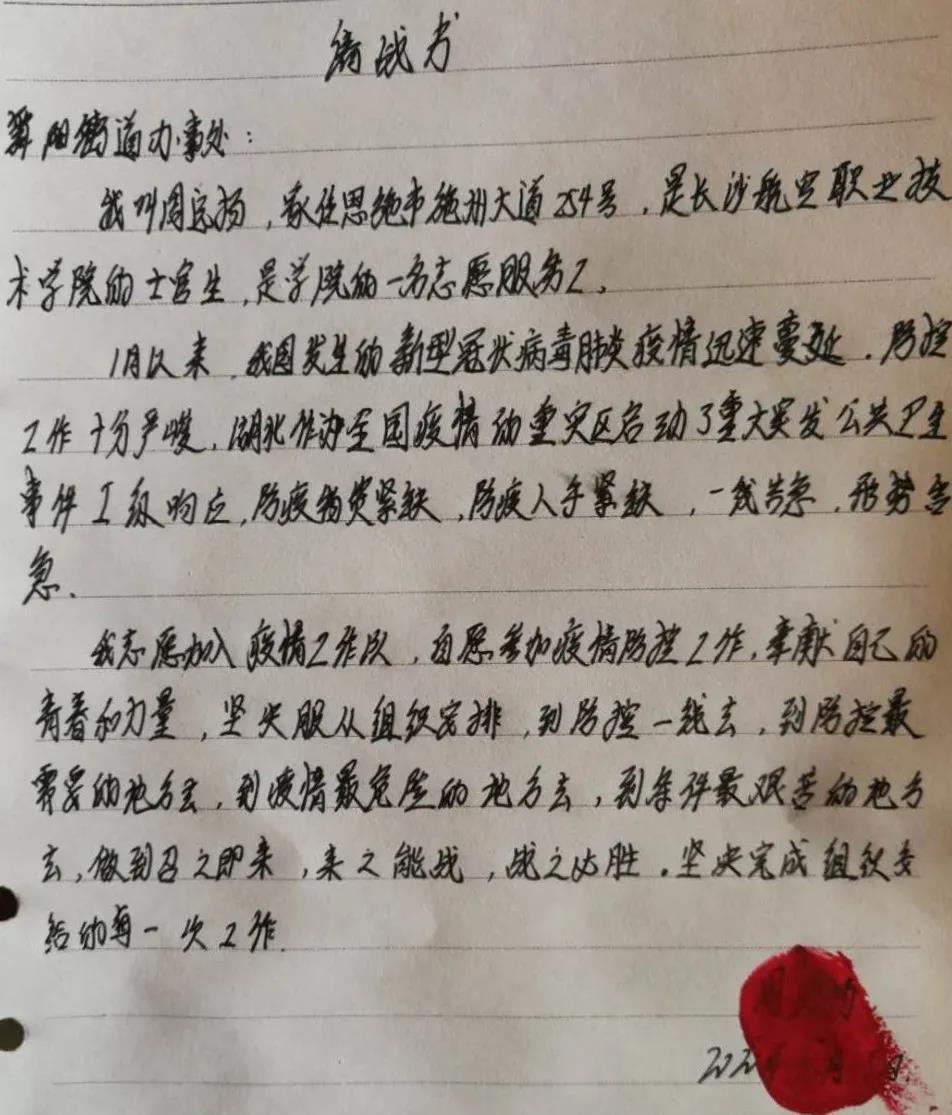 请战书
舞阳街道办事处：
我叫周宗扬，家住恩施市施州大道254号，是长沙航空职业技
术学院的士官生，是学院的一名志愿服务工。
1月以来，我国发生的新型冠状病毒肺炎疫情迅速蔓延，防控
工作十分严峻，湖北作为全国疫情的重灾区启动了重大突发公共卫生
事件I级响应，防疫物资紧缺，防疫人手紧缺，一线告急，形势告
急.
我志愿加入疫情工作队，自愿参加疫情防控工作，奉献自己的
青春和力量，坚决服从组织安排，到防控一线去，到防控最
需要的地方去，到疫情最危险的地方去，到条件最艰苦的地方
去，做到召之即来，来之能战，战之必胜。坚决完成组织交
给的每一次工作.